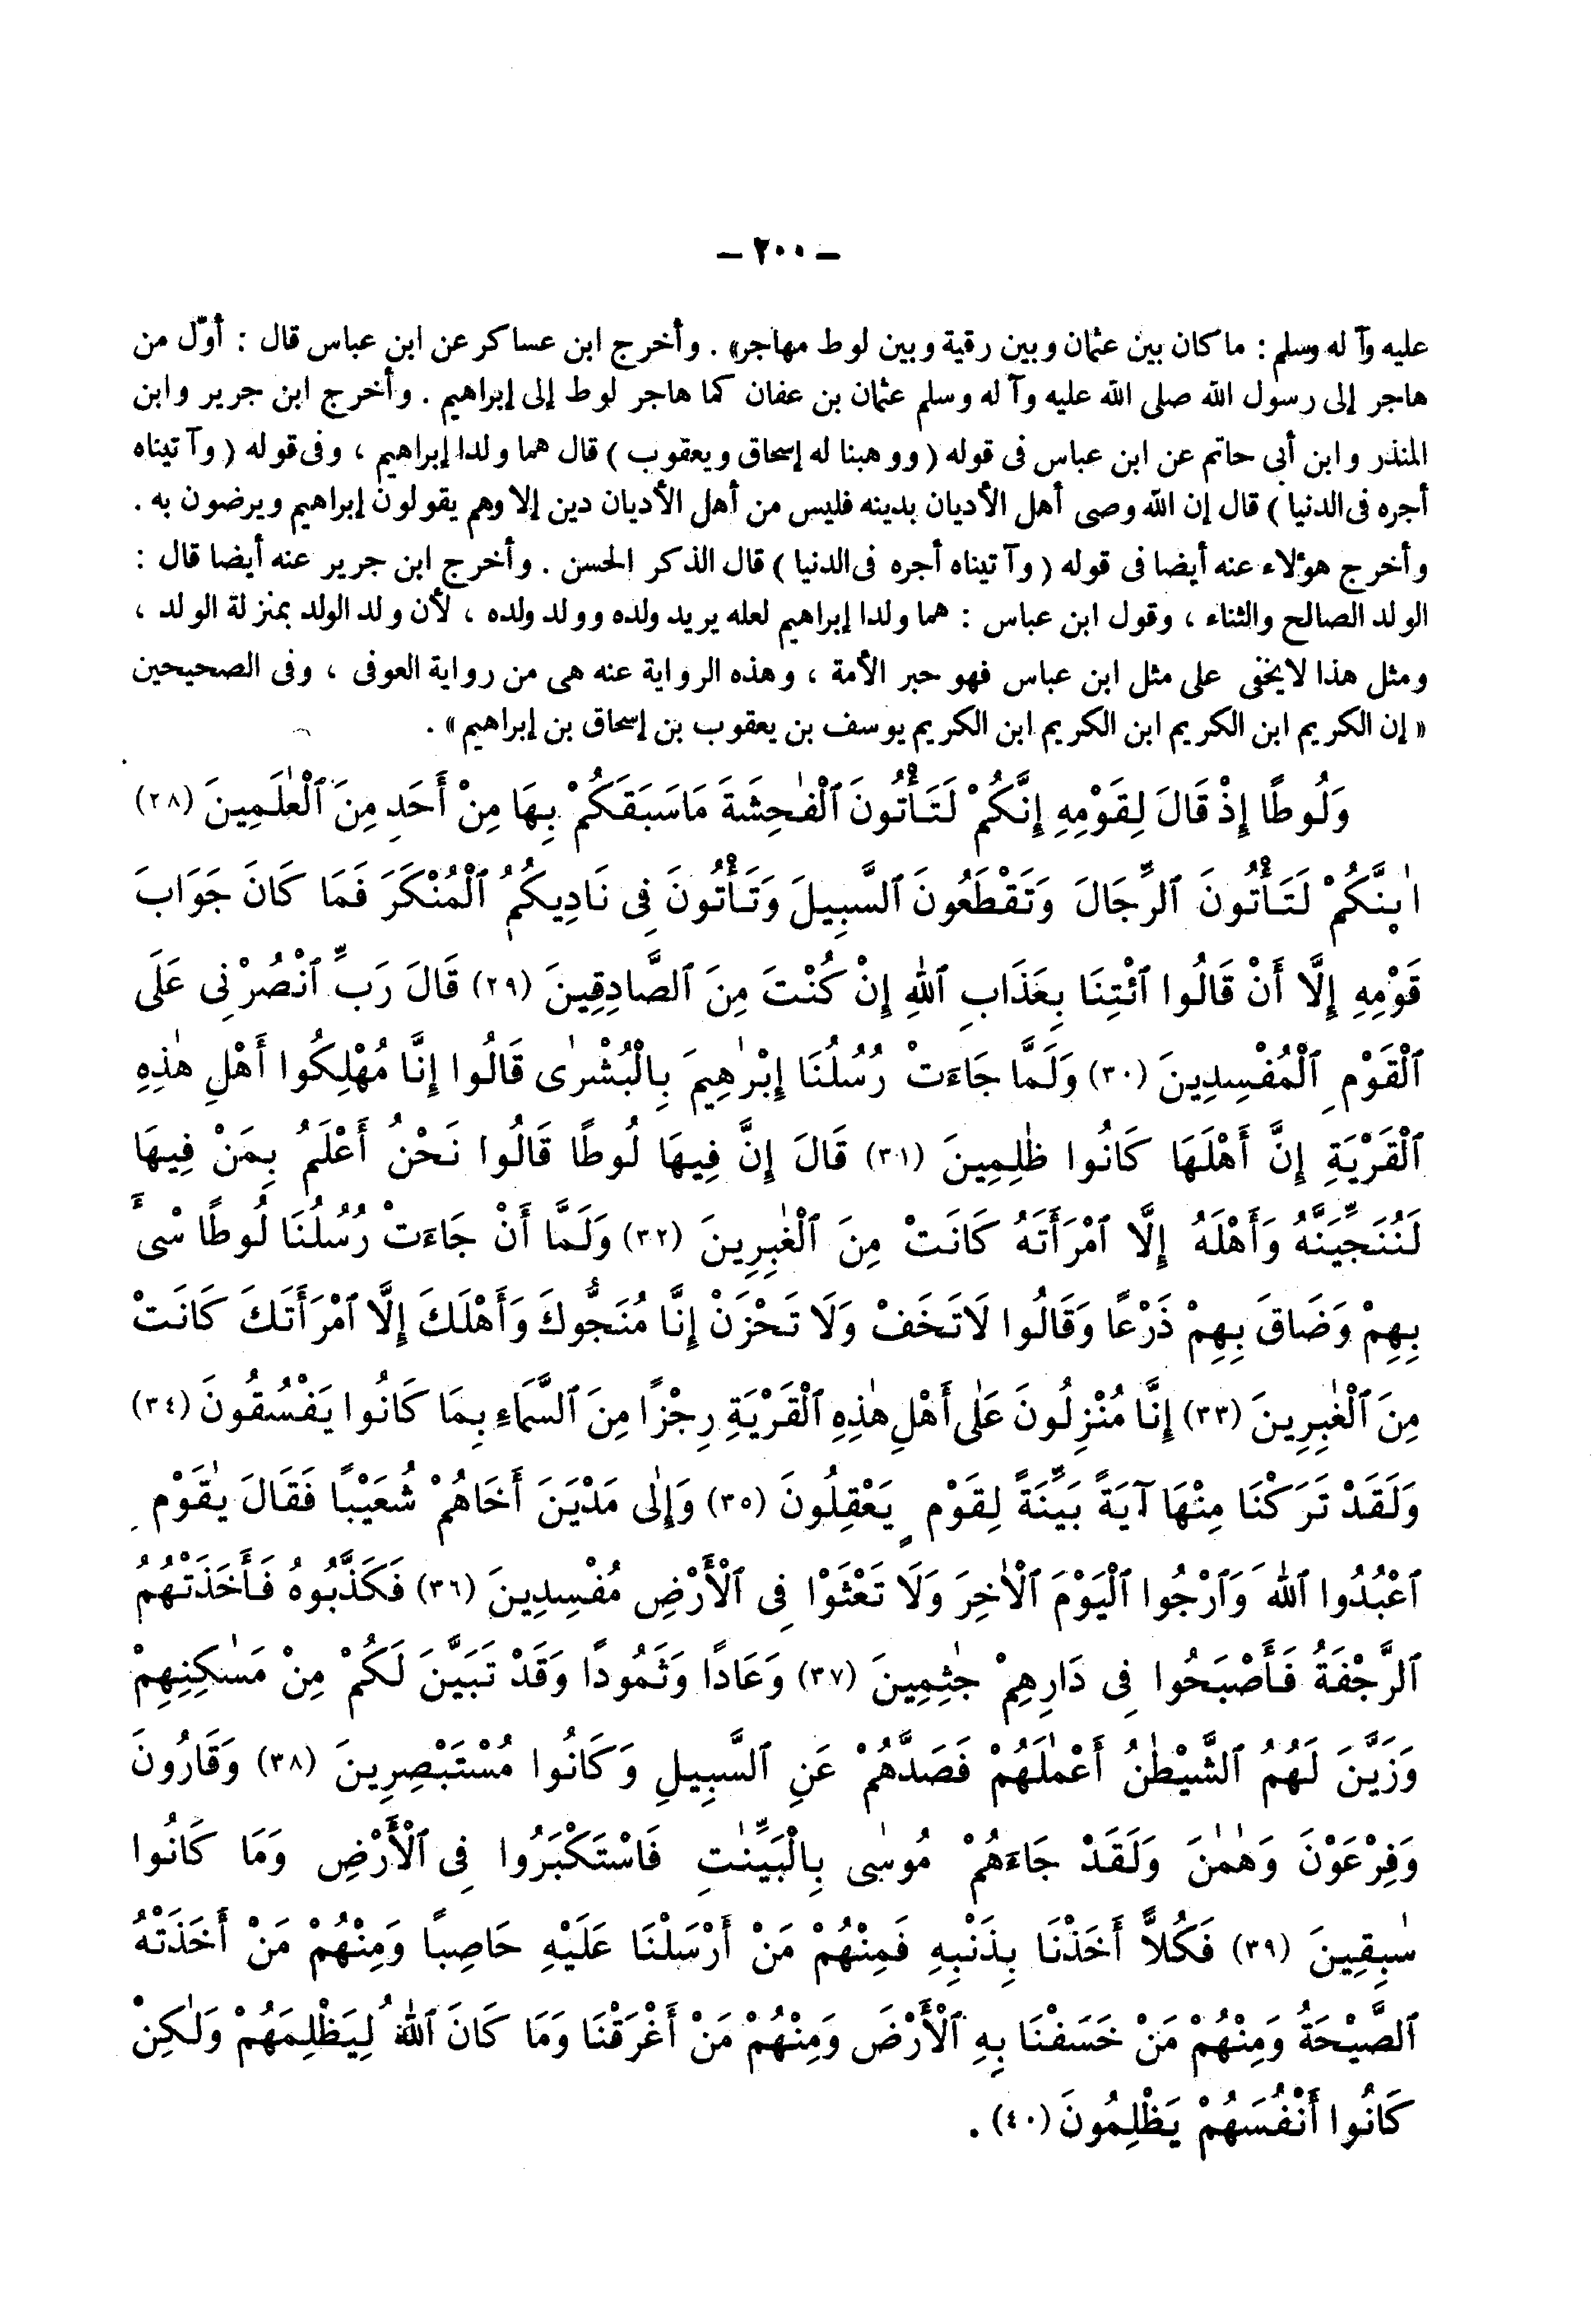 – ٢٠٠ –
عليه وآله وسلم : ما كان بين عثمان وبين رقية وبين لوط مهاجر» . وأخرج ابن عساكر عن ابن عباس قال : أوّل من
هاجر إلى رسول الله صلى الله عليه وآله وسلم عثمان بن عفان كما هاجر لوط إلى إبراهيم . وأخرج ابن جرير وابن
المنذر وابن أبى حاتم عن ابن عباس فى قوله ( ووهبنا له إسحاق ويعقوب ) قال هما ولدا إبراهيم ، وفى قوله ( وآتيناه
أجره فى الدنيا ) قال إن الله وصى أهل الأديان بدينه فليس من أهل الأديان دين إلا وهم يقولون إبراهيم ويرضون به .
وأخرج هؤلاء عنه أيضا فى قوله ( وآتيناه أجره فى الدنيا ) قال الذكر الحسن . وأخرج ابن جرير عنه أيضا قال :
الولد الصالح والثناء ، وقول ابن عباس : هما ولدا إبراهيم لعله يريد ولده وولد ولده ، لأن ولد الولد بمنزلة الولد ،
ومثل هذا لايخفى على مثل ابن عباس فهو حبر الأمة ، وهذه الرواية عنه هى من رواية العوفى ، وفى الصحيحين
« إن الكريم ابن الكريم ابن الكريم ابن الكريم يوسف بن يعقوب بن إسحاق بن إبراهيم » .
وَلُوطًا إِذْ قَالَ لِقَوْمِهِ إِنَّكُمْ لَتَأْتُونَ ٱلْفَٰحِشَةَ مَاسَبَقَكُمْ بِهَا مِنْ أَحَدٍ مِنَ ٱلْعَٰلَمِينَ (٢٨)
أَئِنَّكُمْ لَتَأْتُونَ ٱلرِّجَالَ وَتَقْطَعُونَ ٱلسَّبِيلَ وَتَأْتُونَ فِى نَادِيكُمُ ٱلْمُنْكَرَ فَمَا كَانَ جَوَابَ
قَوْمِهِ إِلَّا أَنْ قَالُوا ٱئْتِنَا بِعَذَابِ ٱللهِ إِنْ كُنْتَ مِنَ ٱلصَّادِقِينَ (٢٩) قَالَ رَبِّ ٱنْصُرْنِى عَلَى
ٱلْقَوْمِ ٱلْمُفْسِدِينَ (٣٠) وَلَمَّا جَاءَتْ رُسُلُنَا إِبْرَٰهِيمَ بِالْبُشْرَىٰ قَالُوا إِنَّا مُهْلِكُوا أَهْلِ هَٰذِهِ
ٱلْقَرْيَةِ إِنَّ أَهْلَهَا كَانُوا ظَٰلِمِينَ (٣١) قَالَ إِنَّ فِيهَا لُوطًا قَالُوا نَحْنُ أَعْلَمُ بِمَنْ فِيهَا
لَنُنَجِّيَنَّهُ وَأَهْلَهُ إِلَّا ٱمْرَأَتَهُ كَانَتْ مِنَ ٱلْغَٰبِرِينَ (٣٢) وَلَمَّا أَنْ جَاءَتْ رُسُلُنَا لُوطًا سِىءَ
بِهِمْ وَضَاقَ بِهِمْ ذَرْعًا وَقَالُوا لَاتَخَفْ وَلَا تَحْزَنْ إِنَّا مُنَجُّوكَ وَأَهْلَكَ إِلَّا ٱمْرَأَتَكَ كَانَتْ
مِنَ ٱلْغَٰبِرِينَ (٣٣) إِنَّا مُنْزِلُونَ عَلَىٰ أَهْلِ هَٰذِهِ ٱلْقَرْيَةِ رِجْزًا مِنَ ٱلسَّمَاءِ بِمَا كَانُوا يَفْسُقُونَ (٣٤)
وَلَقَدْ تَرَكْنَا مِنْهَا آيَةً بَيِّنَةً لِقَوْمٍ يَعْقِلُونَ (٣٥) وَإِلَىٰ مَدْيَنَ أَخَاهُمْ شُعَيْبًا فَقَالَ يَٰقَوْمِ
ٱعْبُدُوا ٱللهَ وَٱرْجُوا ٱلْيَوْمَ ٱلْآخِرَ وَلَا تَعْثَوْا فِى ٱلْأَرْضِ مُفْسِدِينَ (٣٦) فَكَذَّبُوهُ فَأَخَذَتْهُمُ
ٱلرَّجْفَةُ فَأَصْبَحُوا فِى دَارِهِمْ جَٰثِمِينَ (٣٧) وَعَادًا وَثَمُودًا وَقَدْ تَبَيَّنَ لَكُمْ مِنْ مَسَٰكِنِهِمْ
وَزَيَّنَ لَهُمُ ٱلشَّيْطَٰنُ أَعْمَٰلَهُمْ فَصَدَّهُمْ عَنِ ٱلسَّبِيلِ وَكَانُوا مُسْتَبْصِرِينَ (٣٨) وَقَارُونَ
وَفِرْعَوْنَ وَهَٰمَٰنَ وَلَقَدْ جَاءَهُمْ مُوسَىٰ بِالْبَيِّنَٰتِ فَاسْتَكْبَرُوا فِى ٱلْأَرْضِ وَمَا كَانُوا
سَٰبِقِينَ (٣٩) فَكُلًّا أَخَذْنَا بِذَنْبِهِ فَمِنْهُمْ مَنْ أَرْسَلْنَا عَلَيْهِ حَاصِبًا وَمِنْهُمْ مَنْ أَخَذَتْهُ
ٱلصَّيْحَةُ وَمِنْهُمْ مَنْ خَسَفْنَا بِهِ ٱلْأَرْضَ وَمِنْهُمْ مَنْ أَغْرَقْنَا وَمَا كَانَ ٱللهُ لِيَظْلِمَهُمْ وَلَٰكِنْ
كَانُوا أَنْفُسَهُمْ يَظْلِمُونَ (٤٠) .